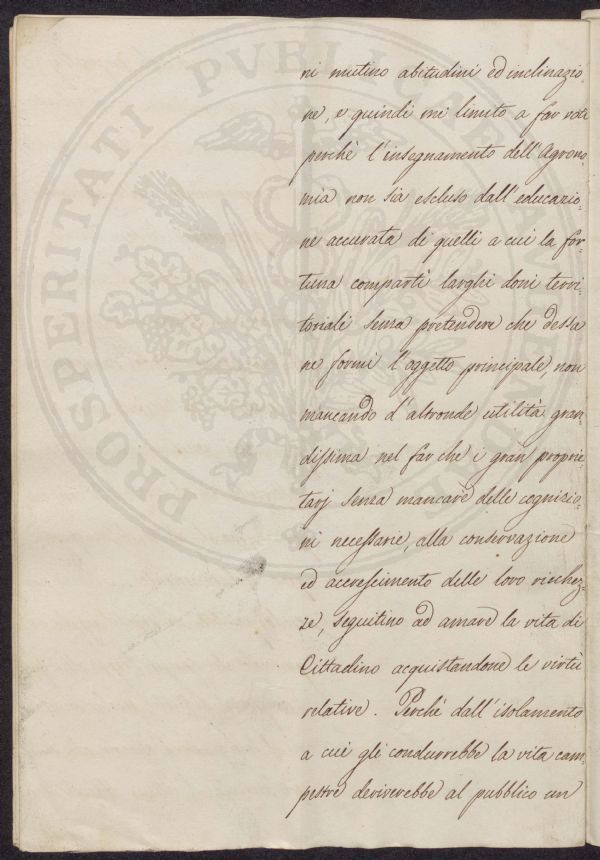 ni mutino abitudini ed inclinazio-
ne, e quindi mi limito a far voti
perchè l'insegnamento dell'Agrono-
mia non sia escluso dall'educazio-
ne accurata di quelli a cui la for-
tuna compartì larghi doni terri-
toriali senza pretendere che dessa
ne formi l'oggetto principale, non
mancando d'altronde utilità gran-
dissima nel far che i gran proprie-
tarj senza mancare delle cognizio-
ni necessarie, alla conservazione
ed accrescimento delle loro ricchez-
ze, seguitino ad amare la vita di
Cittadino acquistandone le virtù
relative. Perchè dall'isolamento
a cui gli condurrebbe la vita cam-
pestre deriverebbe al pubblico un
PROSPERITATI PUBLICAE